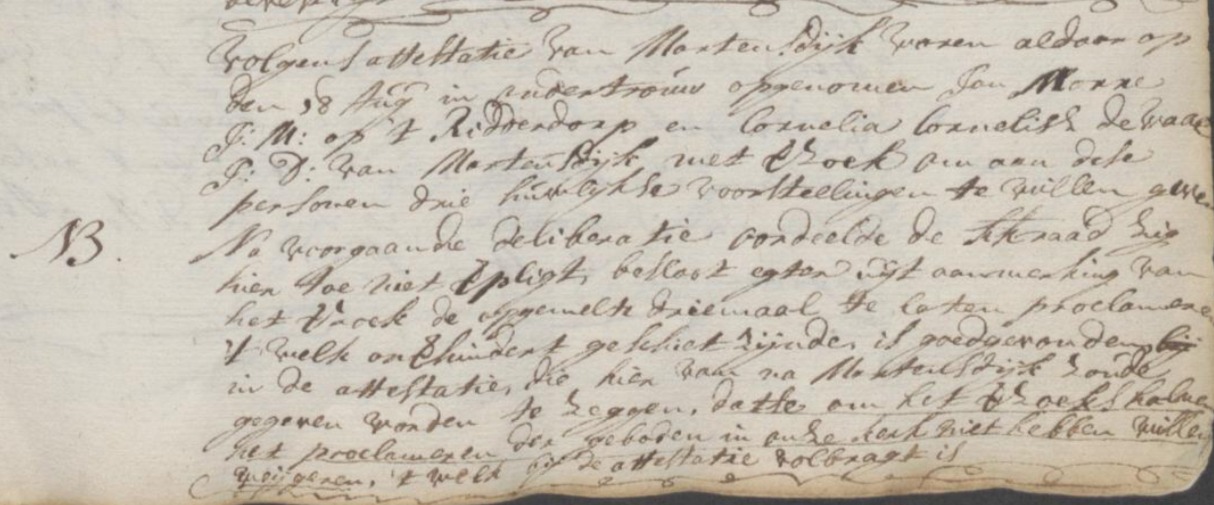 Volgens attestatie van Martensdijk waren aldaar op
den 18 Aug in ondertrouw opgenomen Jan Marre
J: M: op 't Ridderdorp en Cornelia Cornelisz de Waa
J: D: van Martensdijk met vzoek om aan dese
persoonen drie huwlykse voorstellingen te willen geven
NB. Na voorgaande deliberatie oordeelde de Kkraad zig
hier toe niet vpligt, besloot egter uijt aanmerking van
het vzoek de opgemelte driemaal te laten proclameren
't welk onvhindert geschiet zijnde, is goedgevonden
in de attestatie, die hier van na Martensdijk zoude
gegeven worden te zeggen, datse om het vzoeks halven
het proclameren der geboden in onze kerk niet hebben willen
weijgeren, 't welk op de attestatie volbragt is